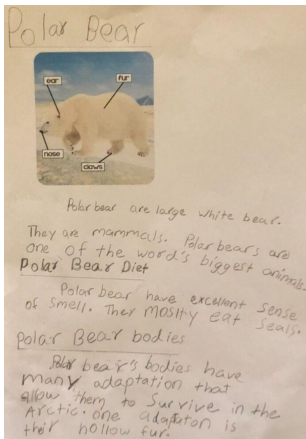 Polar Bear
ear
fur
nose
claws
Polar bear are large white bear.
They are mammals. Polar bears are
one of the word's biggest animals.
Polar Bear Diet
Polar bear have excellent sense
of smell. They moslty eat seals.
polar Bear bodies
Polar bear's bodies have
many adaptation that
allow them to survive in the
Arctic. one adaption is
their hollow fur.